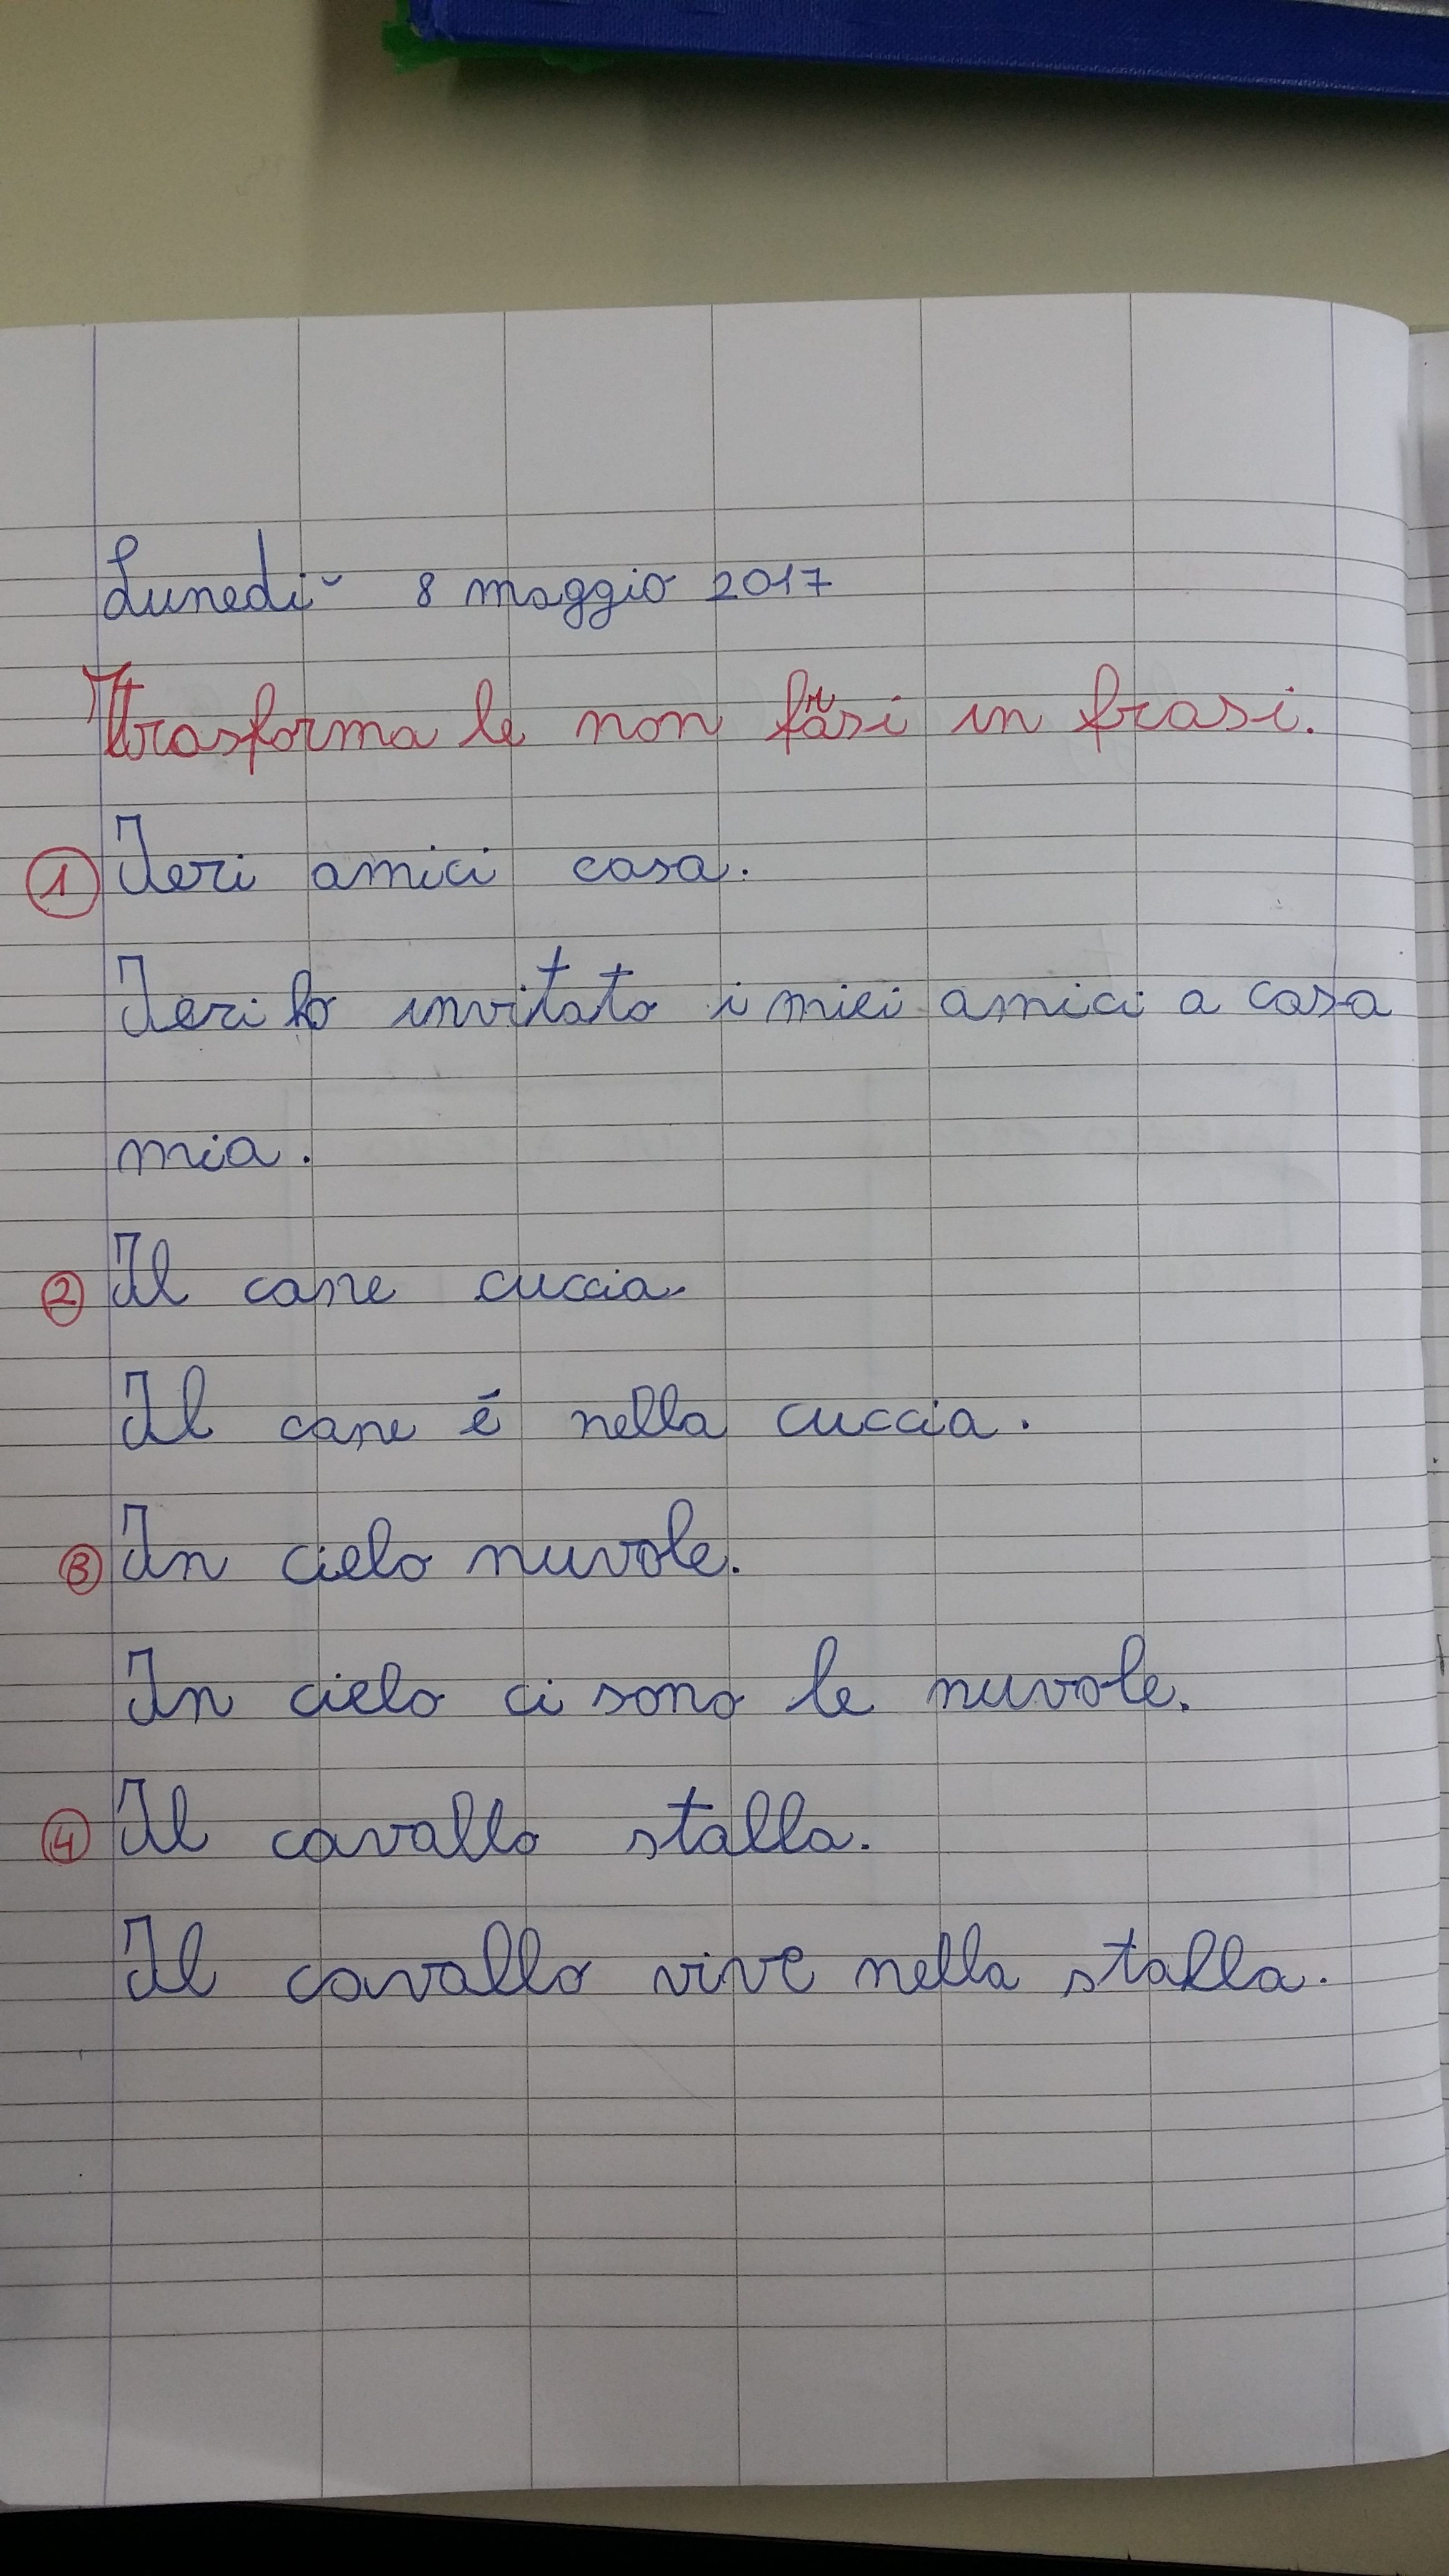 Lunedì 8 maggio 2017
Trasforma le non frasi in frasi.
1 Ieri amici casa.
Ieri ho invitato i miei amici a casa
mia.
2 Il cane cuccia.
Il cane é nella cuccia.
3 In cielo nuvole.
In cielo ci sono le nuvole.
4 Il cavallo stalla.
Il cavallo vive nella stalla.